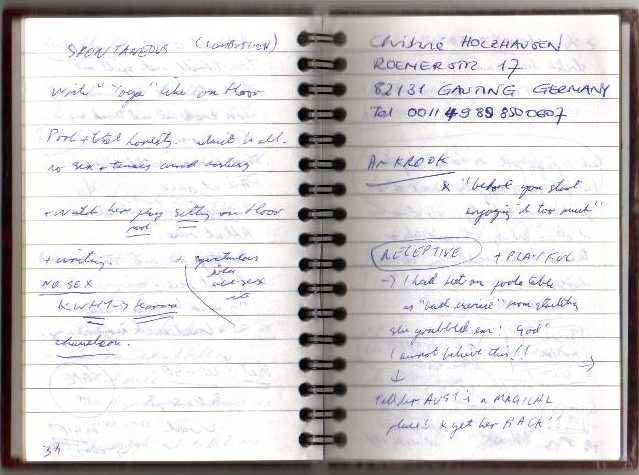 SPONTANEOUS (COMBUSTION)
with "Yoga" like on floor
Pool + total honesty. about it all.
no sex + tennis
+ watch her play sitting on floor
pool
+ writing +
NO SEX
KWHY →
chameleon.
34
Christine HOLZHAUSEN
ROEMERSTR 17
82131 GAUTING GERMANY
Tel 0011 49 89 850 0607
AM KROOK
& "before you start
enjoying it too much"
RECEPTIVE + PLAYFUL
→ I had sat on pool table
as "bath exercise" from
she grabbed em: God'
I cannot believe this!! →
↓
Tell her AUST is a MAGICAL
place & get her BACK!!